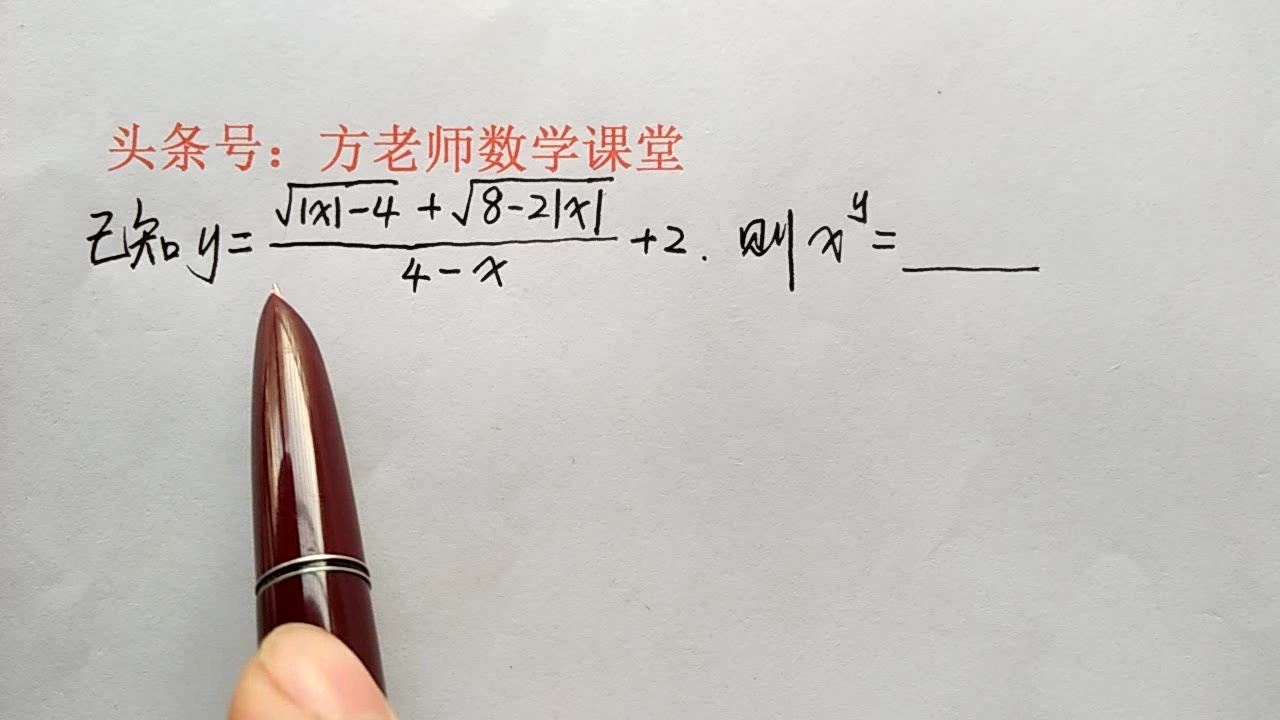 头条号：方老师数学课堂
已知 y = \frac{\sqrt{|x|-4}+\sqrt{8-2|x|}}{4-x}+2. 则 x^y = ____